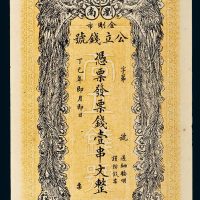 金剛市
公立錢號
字第 號
憑票發票錢壹串文整
丁巳年 即月即日